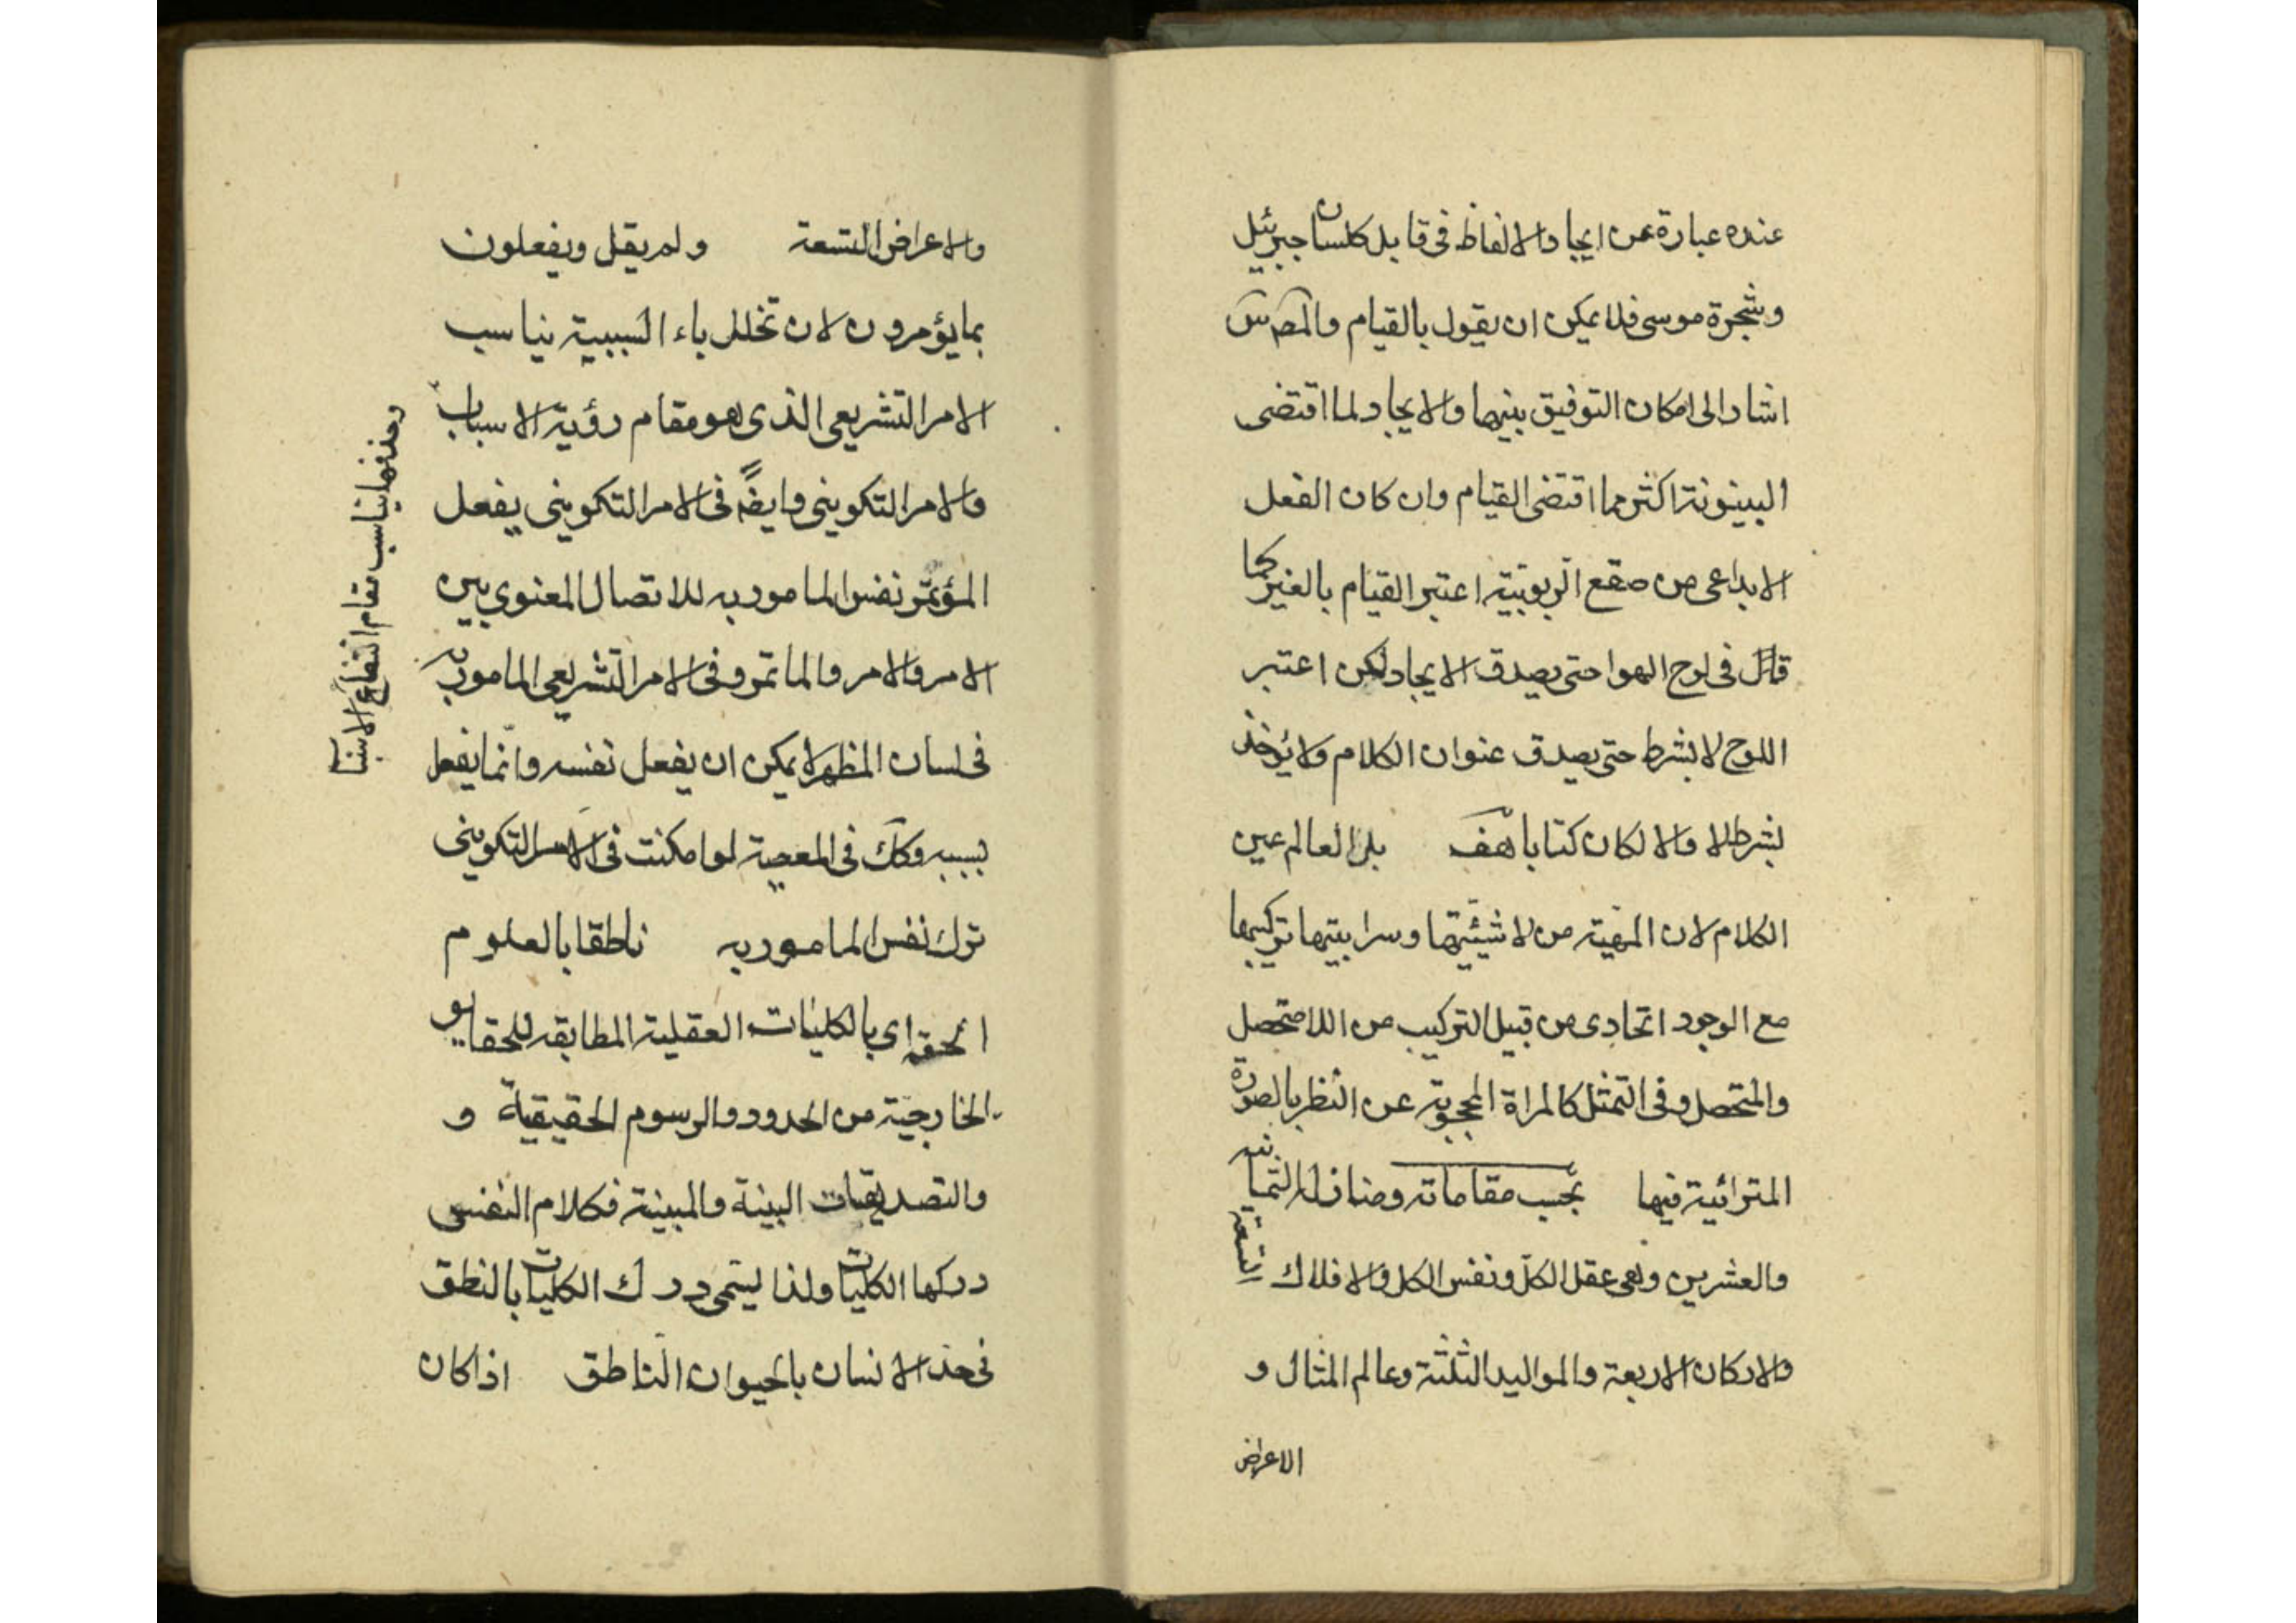 عنده عبارة عن ايجاد الالفاظ فى قابل كلسان جبرئيل
وشجرة موسى فلا يمكن ان يقول بالقيام والمص س
اشار الى امكان التوفيق بينهما والايجاد لما اقتضى
البينونة اكثر مما اقتضى القيام وان كان الفعل
الابداعى من صقع الربوبية اعتبر القيام بالغير كما
قال فى لوح الهوا حتى يصدق الايجاد لكن اعتبر
اللوح لا بشرط حتى يصدق عنوان الكلام ولا يؤخذ
بشرط لا والا لكان كتابا هف بل العالم عين
الكلام لان المهية من لا شيئيتها وسرابيتها تركيبها
مع الوجود اتحادى من قبيل التركيب من اللامتحصل
والمتحصل وفى التمثل كالمراة المحجوبة عن النظر بالصورة
المترائية فيها بحسب مقاماته ومنازله الثمانيه
والعشرين وهى عقل الكل ونفس الكل والافلاك التسعة
والاركان الاربعة والمواليد الثلثة وعالم المثال و
الاعراض
والاعراض التسعة ولم يقل ويفعلون
بما يؤمرون لان تخلل باء السببية يناسب
الامر التشريعى الذى هو مقام رؤية الاسباب
والامر التكوينى وايضا فى الامر التكوينى يفعل
المؤتمر نفس المامور به للاتصال المعنوى بين
الامر والامر والماتمر وفى الامر التشريعى المامور به
فى لسان المظهر لا يمكن ان يفعل نفسه وانما يفعل
بسببه وكك فى المعصية لو امكنت فى الامر التكوينى
ترك نفس المامور به ناطقا بالعلوم
الحقه اى بالكليات العقلية المطابقه للحقايق
الخارجية من الحدود والرسوم الحقيقية و
والتصديقات البينة والمبينة فكلام النفس
دركها الكليات ولذا يسمى درك الكليات بالنطق
فى حد الانسان بالحيوان الناطق اذا كان
وحذفها يناسب مقام ارتفاع الاسباب